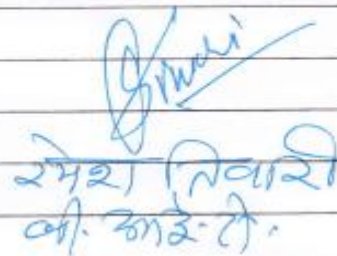 रमेश तिवारी
बी. आई. टी.